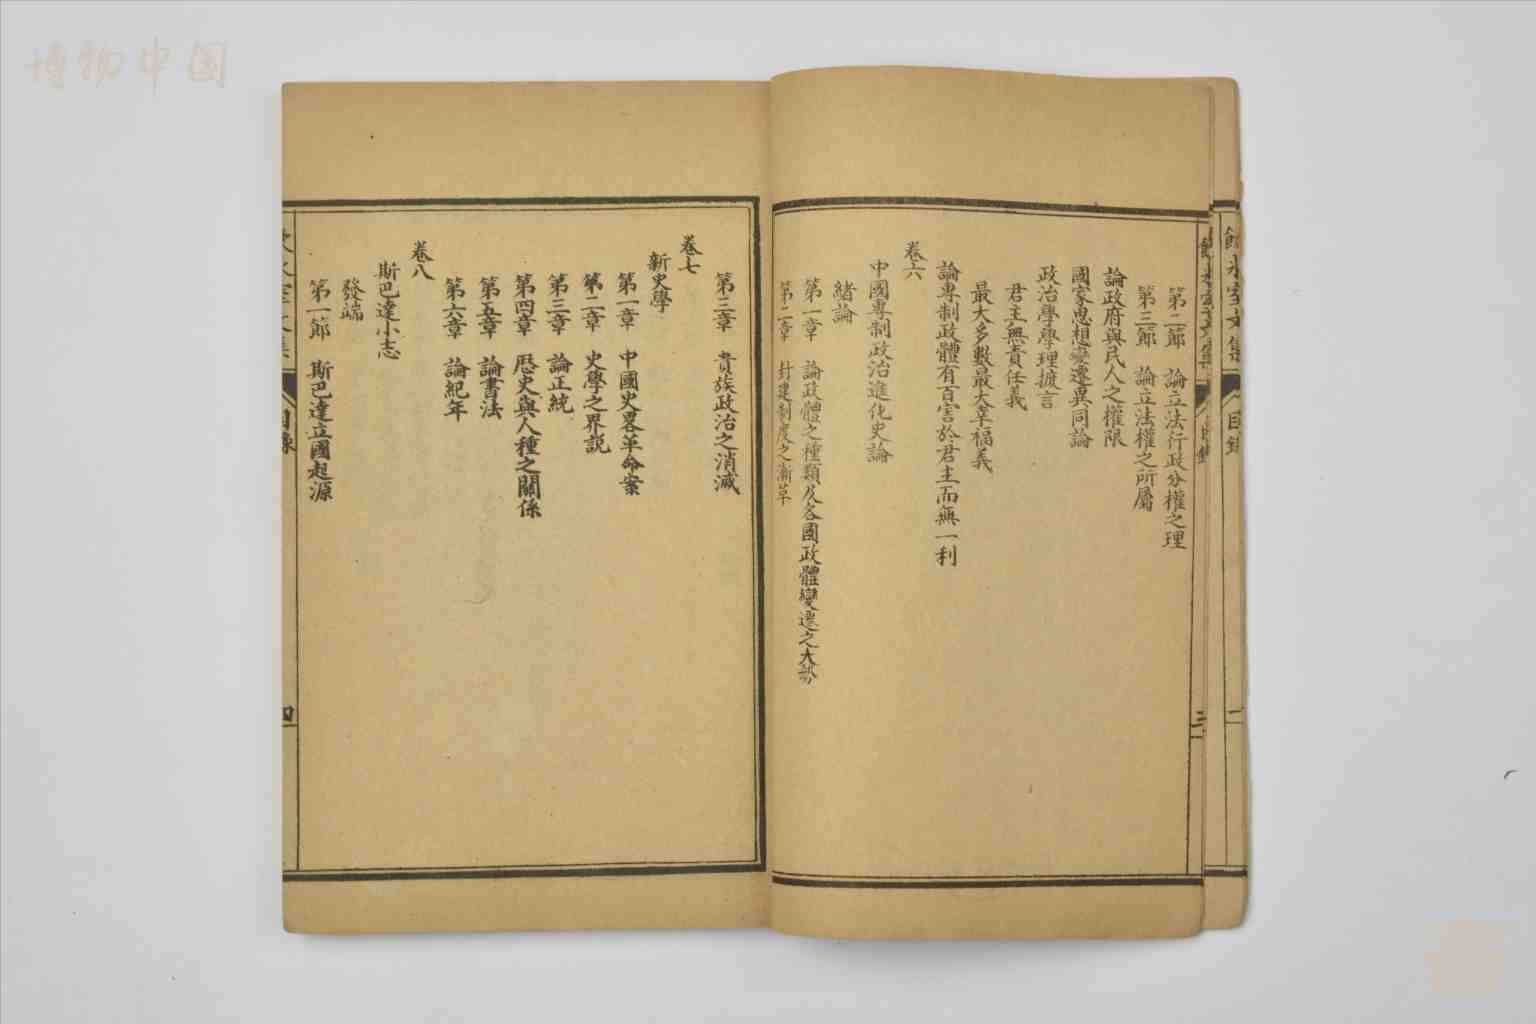 博物中國
飲冰室文集
目錄
一
第二節　論立法行政分權之理
第三節　論立法權之所屬
論政府與民人之權限
國家思想變遷異同論
政治學學理摭言
君主無責任義
最大多數最大幸福義
論專制政體有百害於君主而無一利
卷六
中國專制政治進化史論
緒論
第一章　論政體之種類及各國政體變遷之大勢
第二章　封建制度之漸革
第三章　貴族政治之消滅
卷七
新史學
第一章　中國史畧革命案
第二章　史學之界説
第三章　論正統
第四章　歷史與人種之關係
第五章　論書法
第六章　論紀年
卷八
斯巴達小志
發端
第一節　斯巴達立國起源
目錄
四